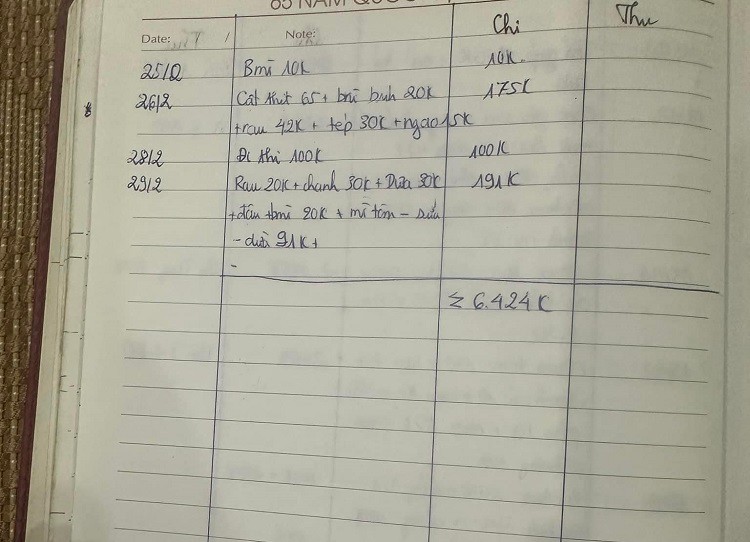 65 NĂM QUỐC
Date: Note: Chi Thu
25/2 Bmì 10K 10K
26/2 Cất thịt 65 + bmì 20K 175K
+ rau 42K + tép 30K + ngao 15K
28/2 Đi thi 100K 100K
29/2 Rau 20K + chanh 30K + Dừa 30K 191K
+ đậu + bmì 20K + mì tôm - sữa
- dưa 91K +
-
Σ 6.424K